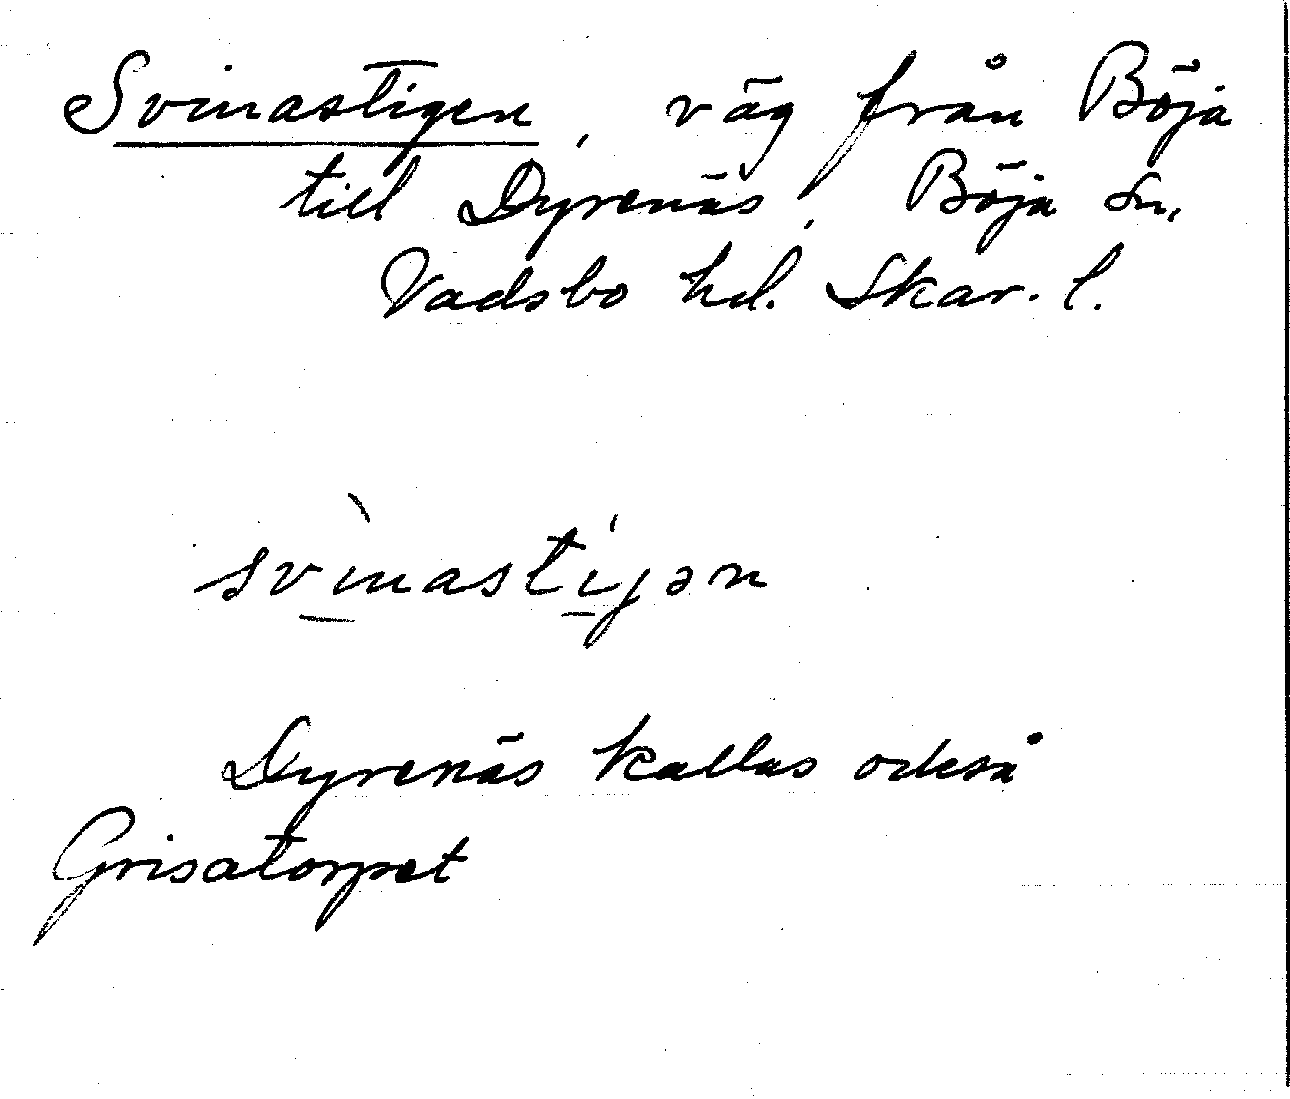 Svinastigen, väg från Böja
till Dyrenäs, Böja sn,
Vadsbo hd. Skar. l.
svìnastíjən
Dyrenäs kallas också
Grisatorpet